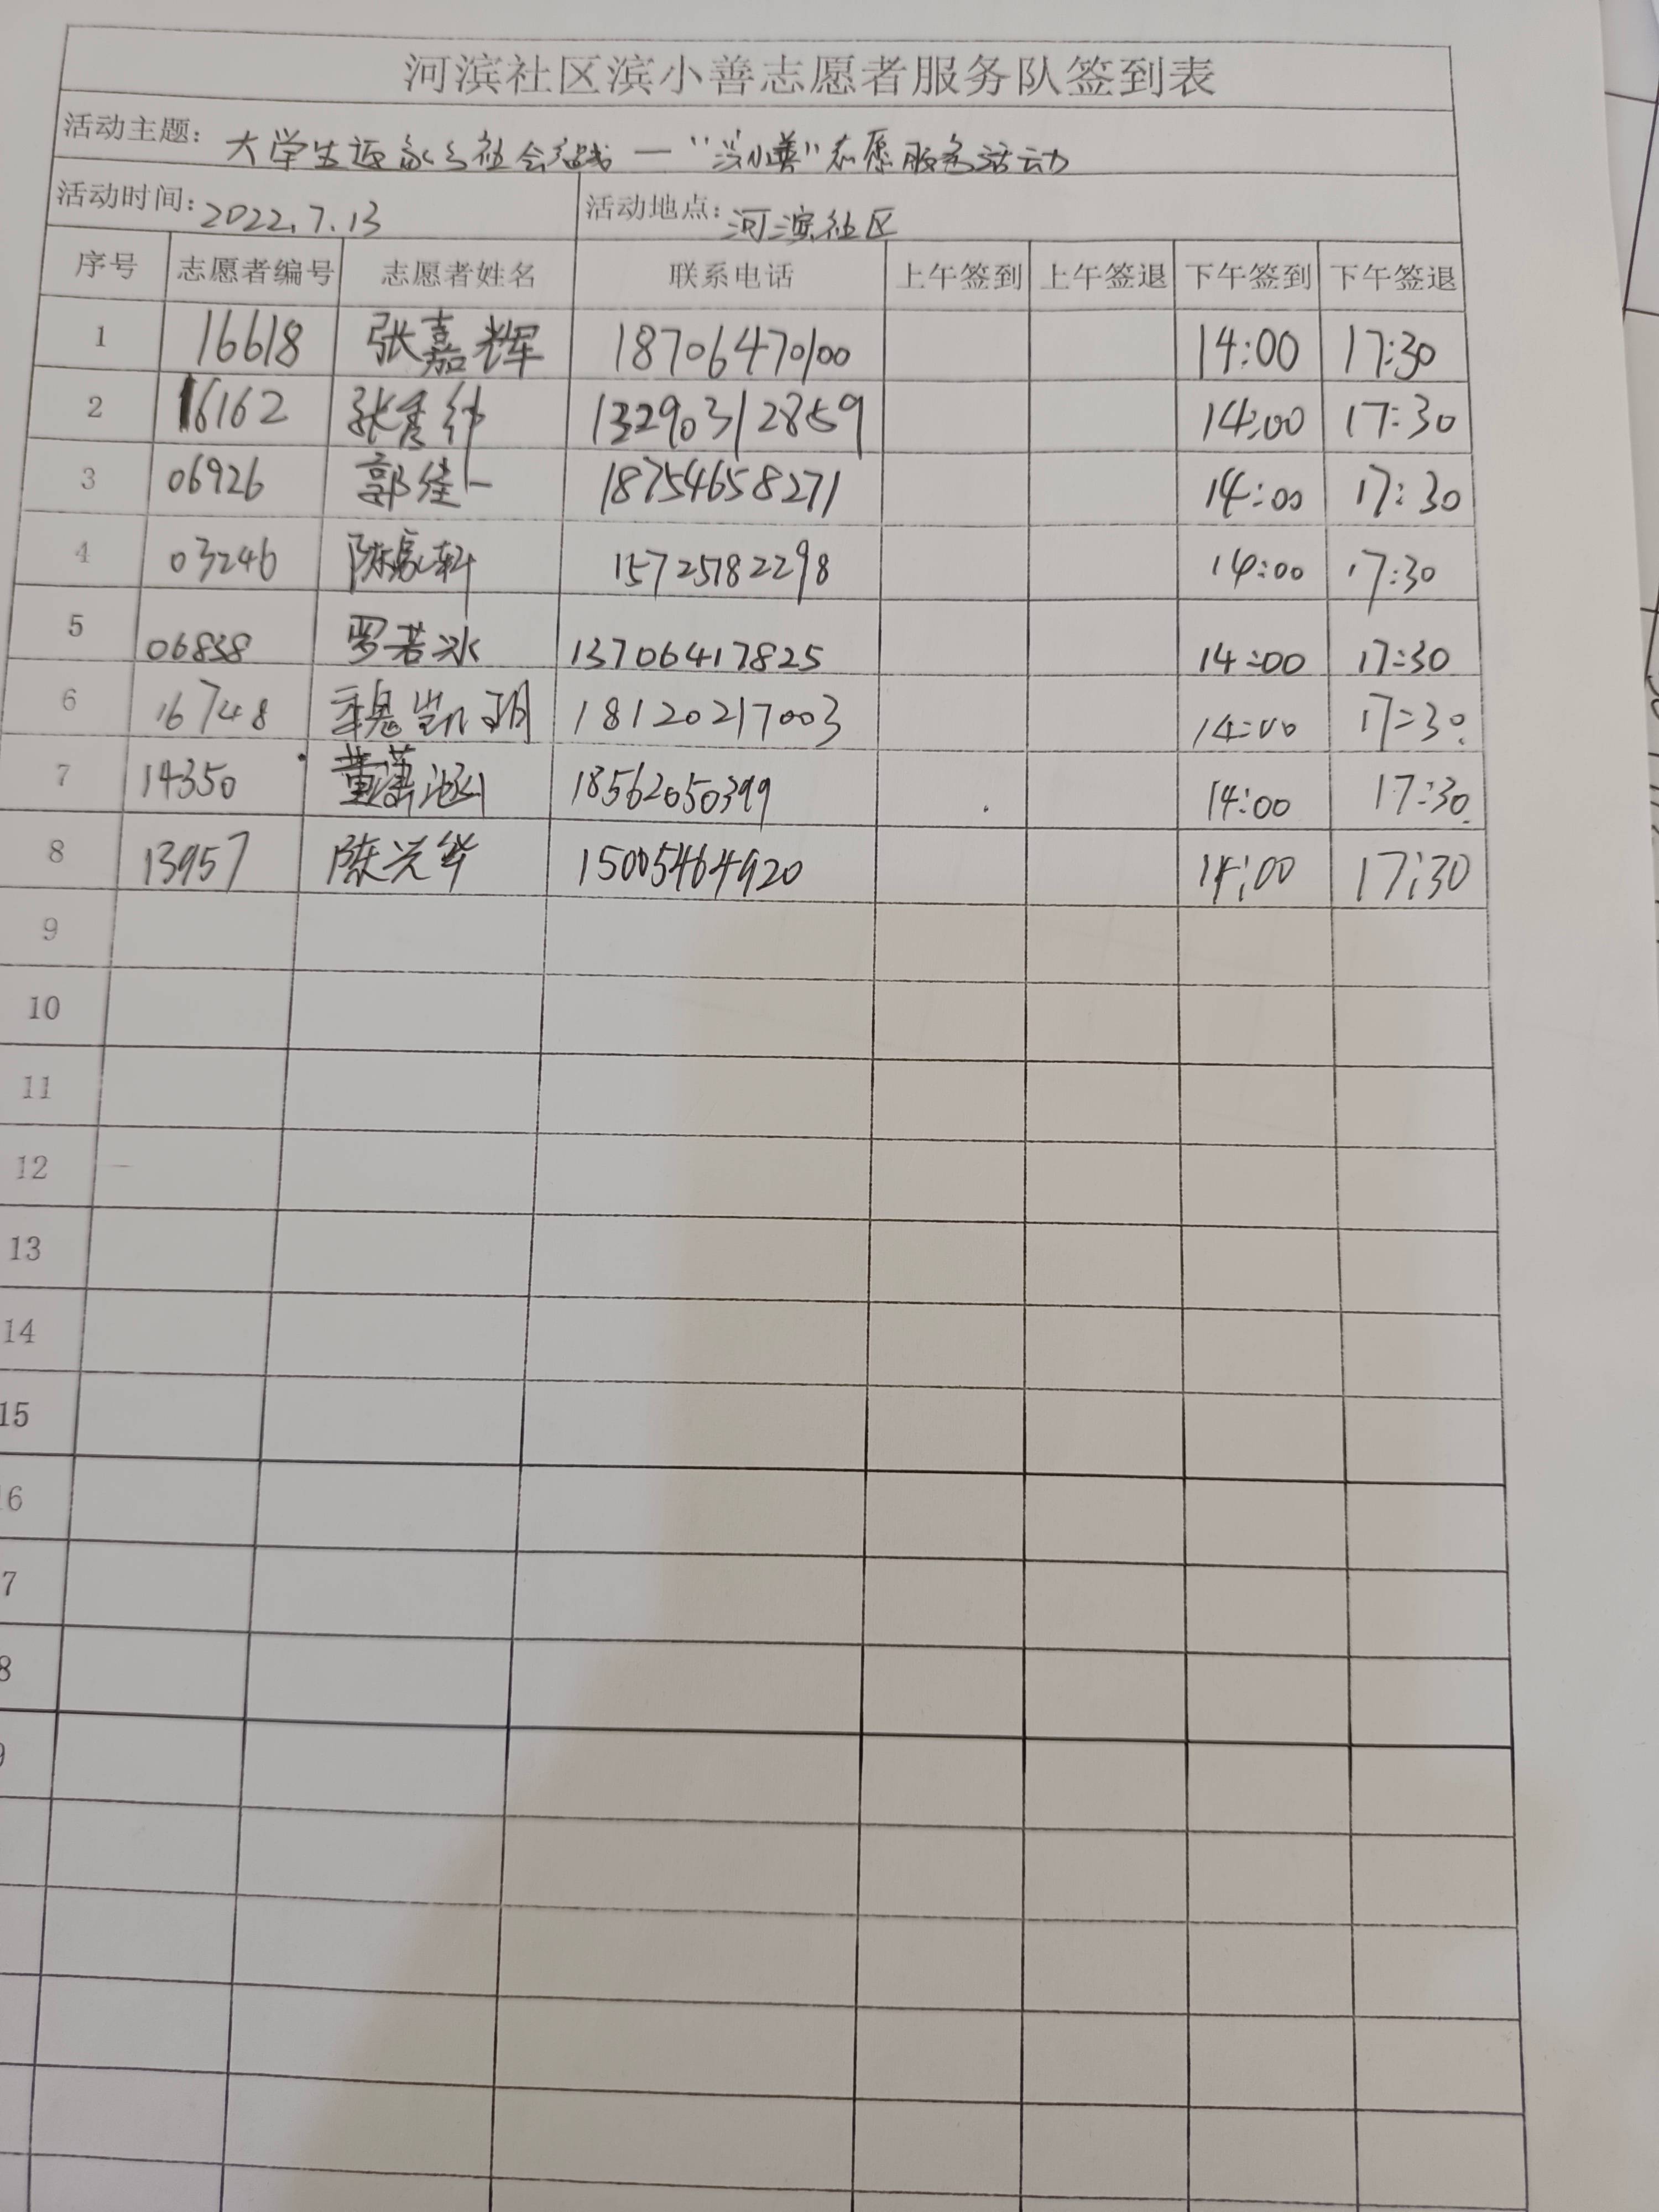 河滨社区滨小善志愿者服务队签到表
活动主题: 大学生返家乡社会实践一"滨小善"志愿服务活动
活动时间: 2022.7.13 活动地点: 河滨社区
序号 志愿者编号 志愿者姓名 联系电话 上午签到 上午签退 下午签到 下午签退
1 16618 张嘉辉 18706470100 14:00 17:30
2 16162 张 13290312859 14:00 17:30
3 06926 郭佳一 18754658271 14:00 17:30
4 03246 陈 15725182298 14:00 17:30
5 06838 罗若冰 13706417825 14:00 17:30
6 16748 魏凯玥 18120217003 14:00 17:30
7 14350 董潇 18562050399 14:00 17:30
8 13957 陈兴华 15005464920 14:00 17:30
9
10
11
12
13
14
15
6
7
8
9